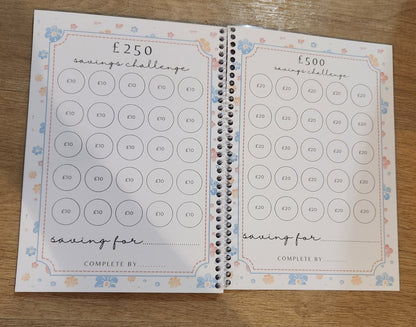 £250
savings challenge
£10 £10 £10 £10 £10
£10 £10 £10 £10 £10
£10 £10 £10 £10 £10
£10 £10 £10 £10 £10
£10 £10 £10 £10 £10
saving for
COMPLETE BY
£500
savings challenge
£20 £20 £20 £20 £20
£20 £20 £20 £20 £20
£20 £20 £20 £20 £20
£20 £20 £20 £20 £20
£20 £20 £20 £20 £20
saving for
COMPLETE BY